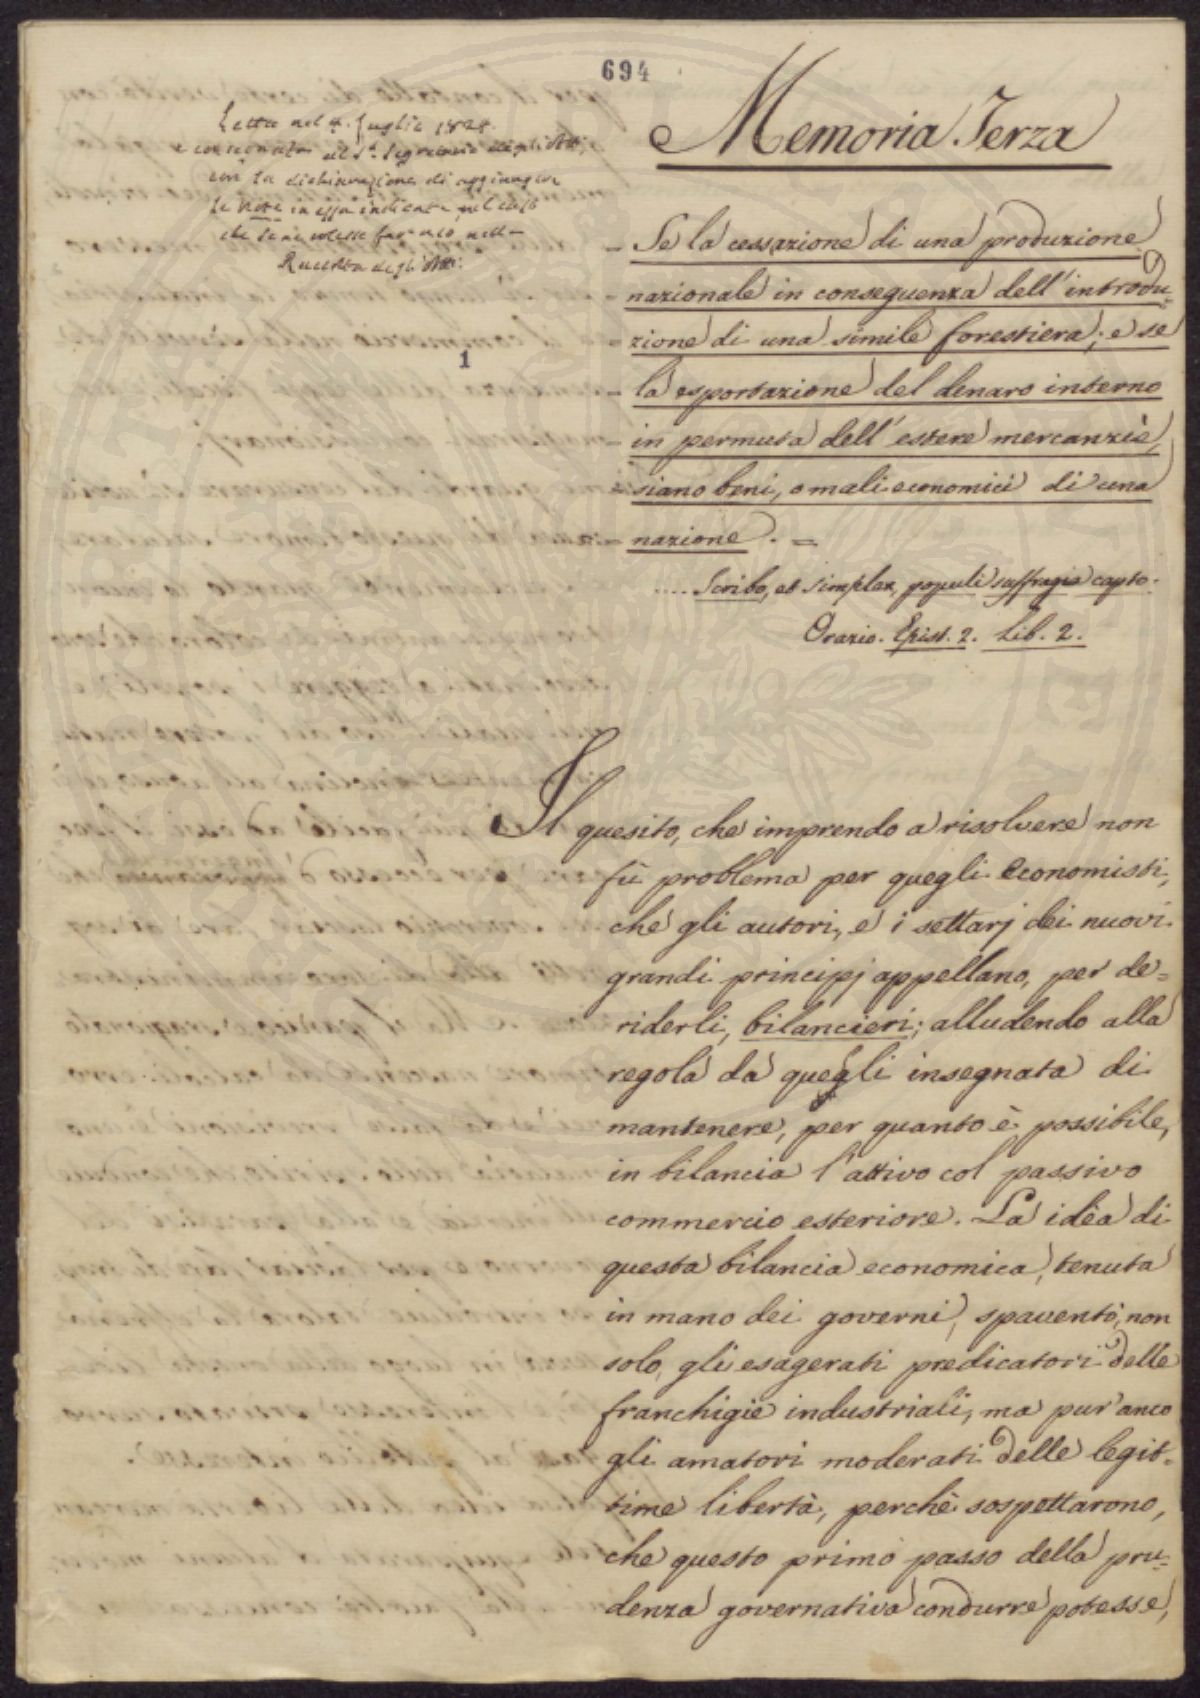 694
Letta nel 4. Luglio 1824.
e consegnata al Sr. Segretario degli Atti,
con la dichiarazione di aggiungere
le note in essa indicate nel caso
che se ne volesse far uso nella
Raccolta degli Atti.
1
Memoria Terza
= Se la cessazione di una produzione
= nazionale in conseguenza dell'introdu=
= zione di una simile forestiera; e se
= la esportazione del denaro interno
= in permuta dell'estere mercanzie,
= siano beni, o mali economici di una
= nazione. =
.... Scribo, et simplex populi suffragia capto.
Orazio. Epist. 2. Lib. 2.
Il quesito, che imprendo a risolvere non
fù problema per quegli economisti,
che gli autori, e i settarj dei nuovi
grandi principj appellano, per de=
riderli, bilancieri; alludendo alla
regola da quegli insegnata di
mantenere, per quanto è possibile,
in bilancia l'attivo col passivo
commercio esteriore. La idèa di
questa bilancia economica, tenuta
in mano dei governi, spaventò, non
solo, gli esagerati predicatori delle
franchigie industriali, ma pur'anco
gli amatori moderati delle legit=
time libertà, perchè sospettarono,
che questo primo passo della pru=
denza governativa condurre potesse,